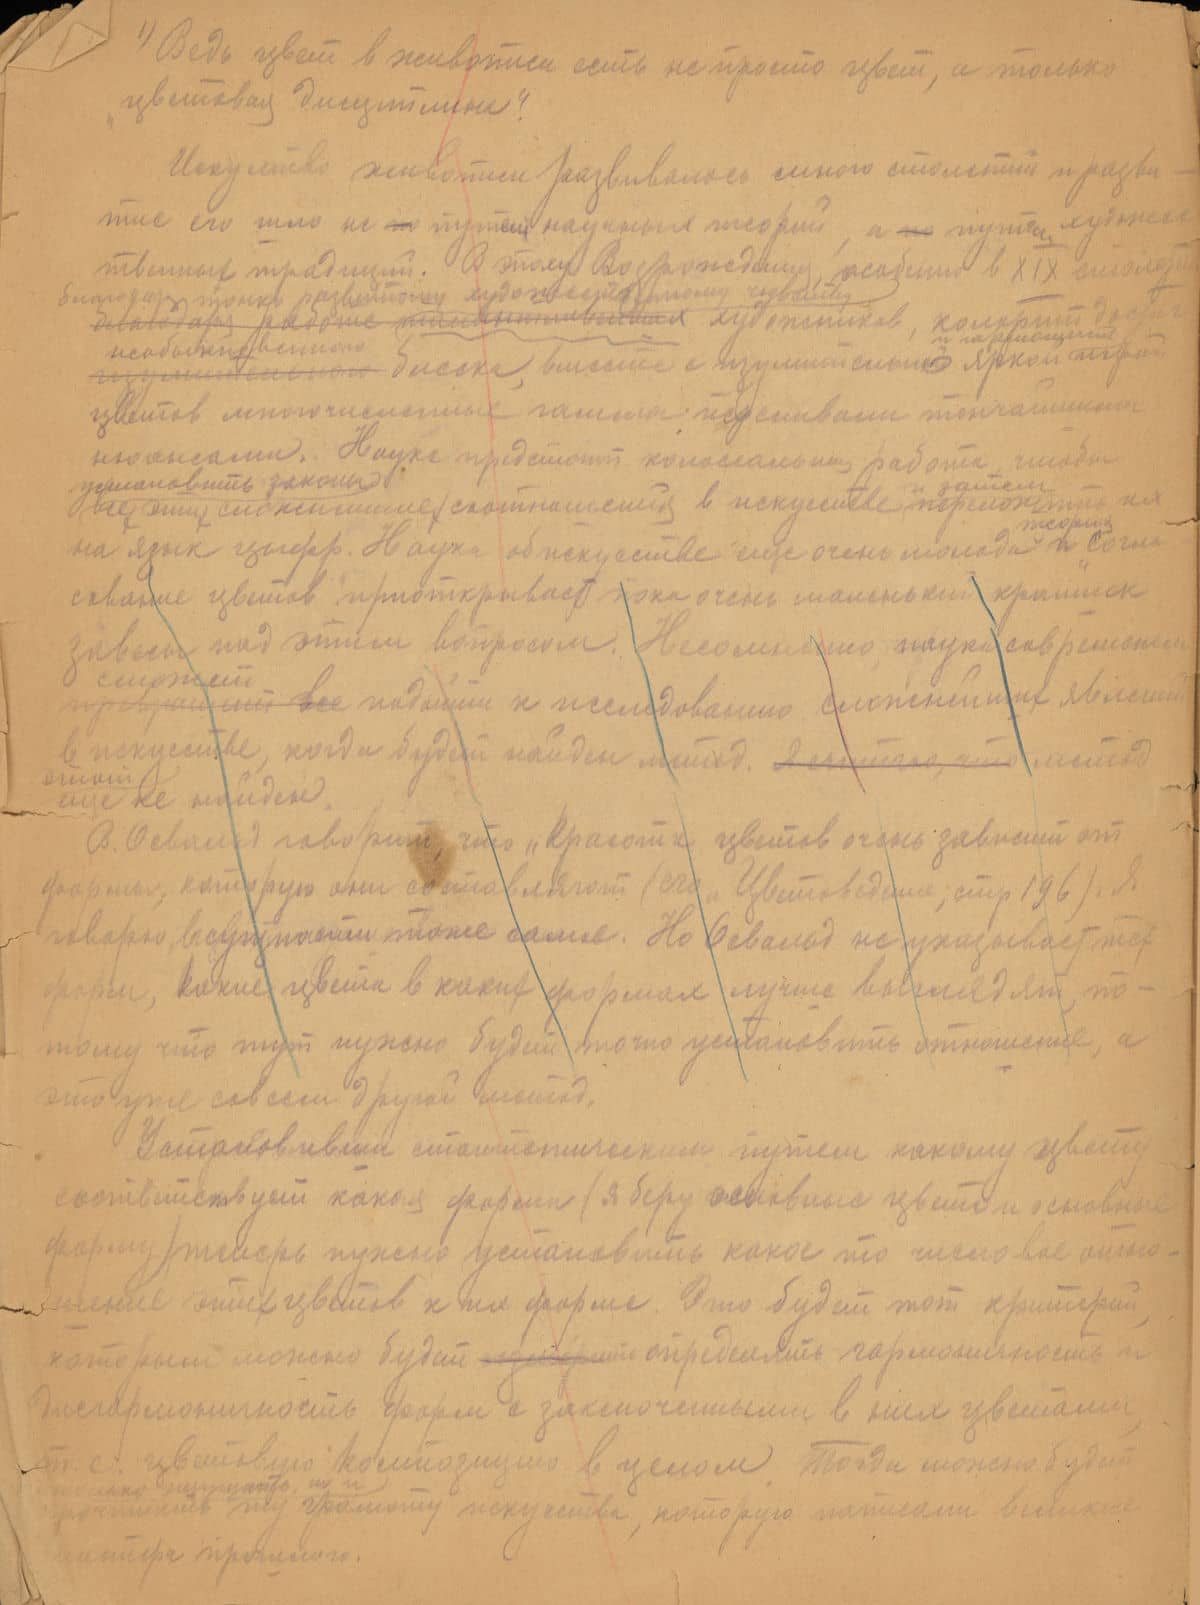 1) Ведь цвет в живописи есть не просто цвет, а только
„цветовая дисциплина“?
Искусство живописи развивалось много столетий и разви-
тие его шло не по путем научных теорий, а по путем художес-
твенных традиций. В эпоху Возрождения, особенно в XIX столетии
благодаря тонко развитому художественному чувству
благодаря работе талантливейших художников, колорит достиг
необыкновенного
изумительного блеска, вместе с изумительной яркой игрой
цветов многочисленные гаммы тончайшими
нюансами. Науке предстоит колоссальная работа, чтобы
установить законы
все эти сложнейшие соотношения в искусстве и затем переложить их
на язык цыфр. Наука об искусстве еще очень молода и теория „Согла-
сование цветов“ приоткрывает пока очень маленький краешек
завесы над этим вопросом. Несомненно, наука современем
сможет
все подойти к исследованию сложнейших явлений
в искусстве, когда будет найден метод. Я считаю, что метод
этот
еще не найден.
В. Освальд говорит, что „Красота цветов очень зависит от
формы, которую они составляют (его „Цветоведение, стр 196). Я
говорю, в сущности тоже самое. Но Освальд не указывает тех
форм, какие цвета в каких формах лучше выглядят, по-
тому что тут нужно будет точно установить отношение, а
это уже совсем другой метод.
Установивши статистическим путем какому цвету
соответствует какая форма (я беру основные цвета и основные
форму) теперь нужно установить какое то числовое отно-
шение этих цветов к их форме. Это будет тот критерий,
которым можно будет определять гармоничность и
дисгармоничность форм с заключенными в них цветами,
т. е. цветовую композицию в целом. Тогда можно будет
только ощущать, но и
прочитать ту грамоту искусства, которую написали великие
мастера прошлого.